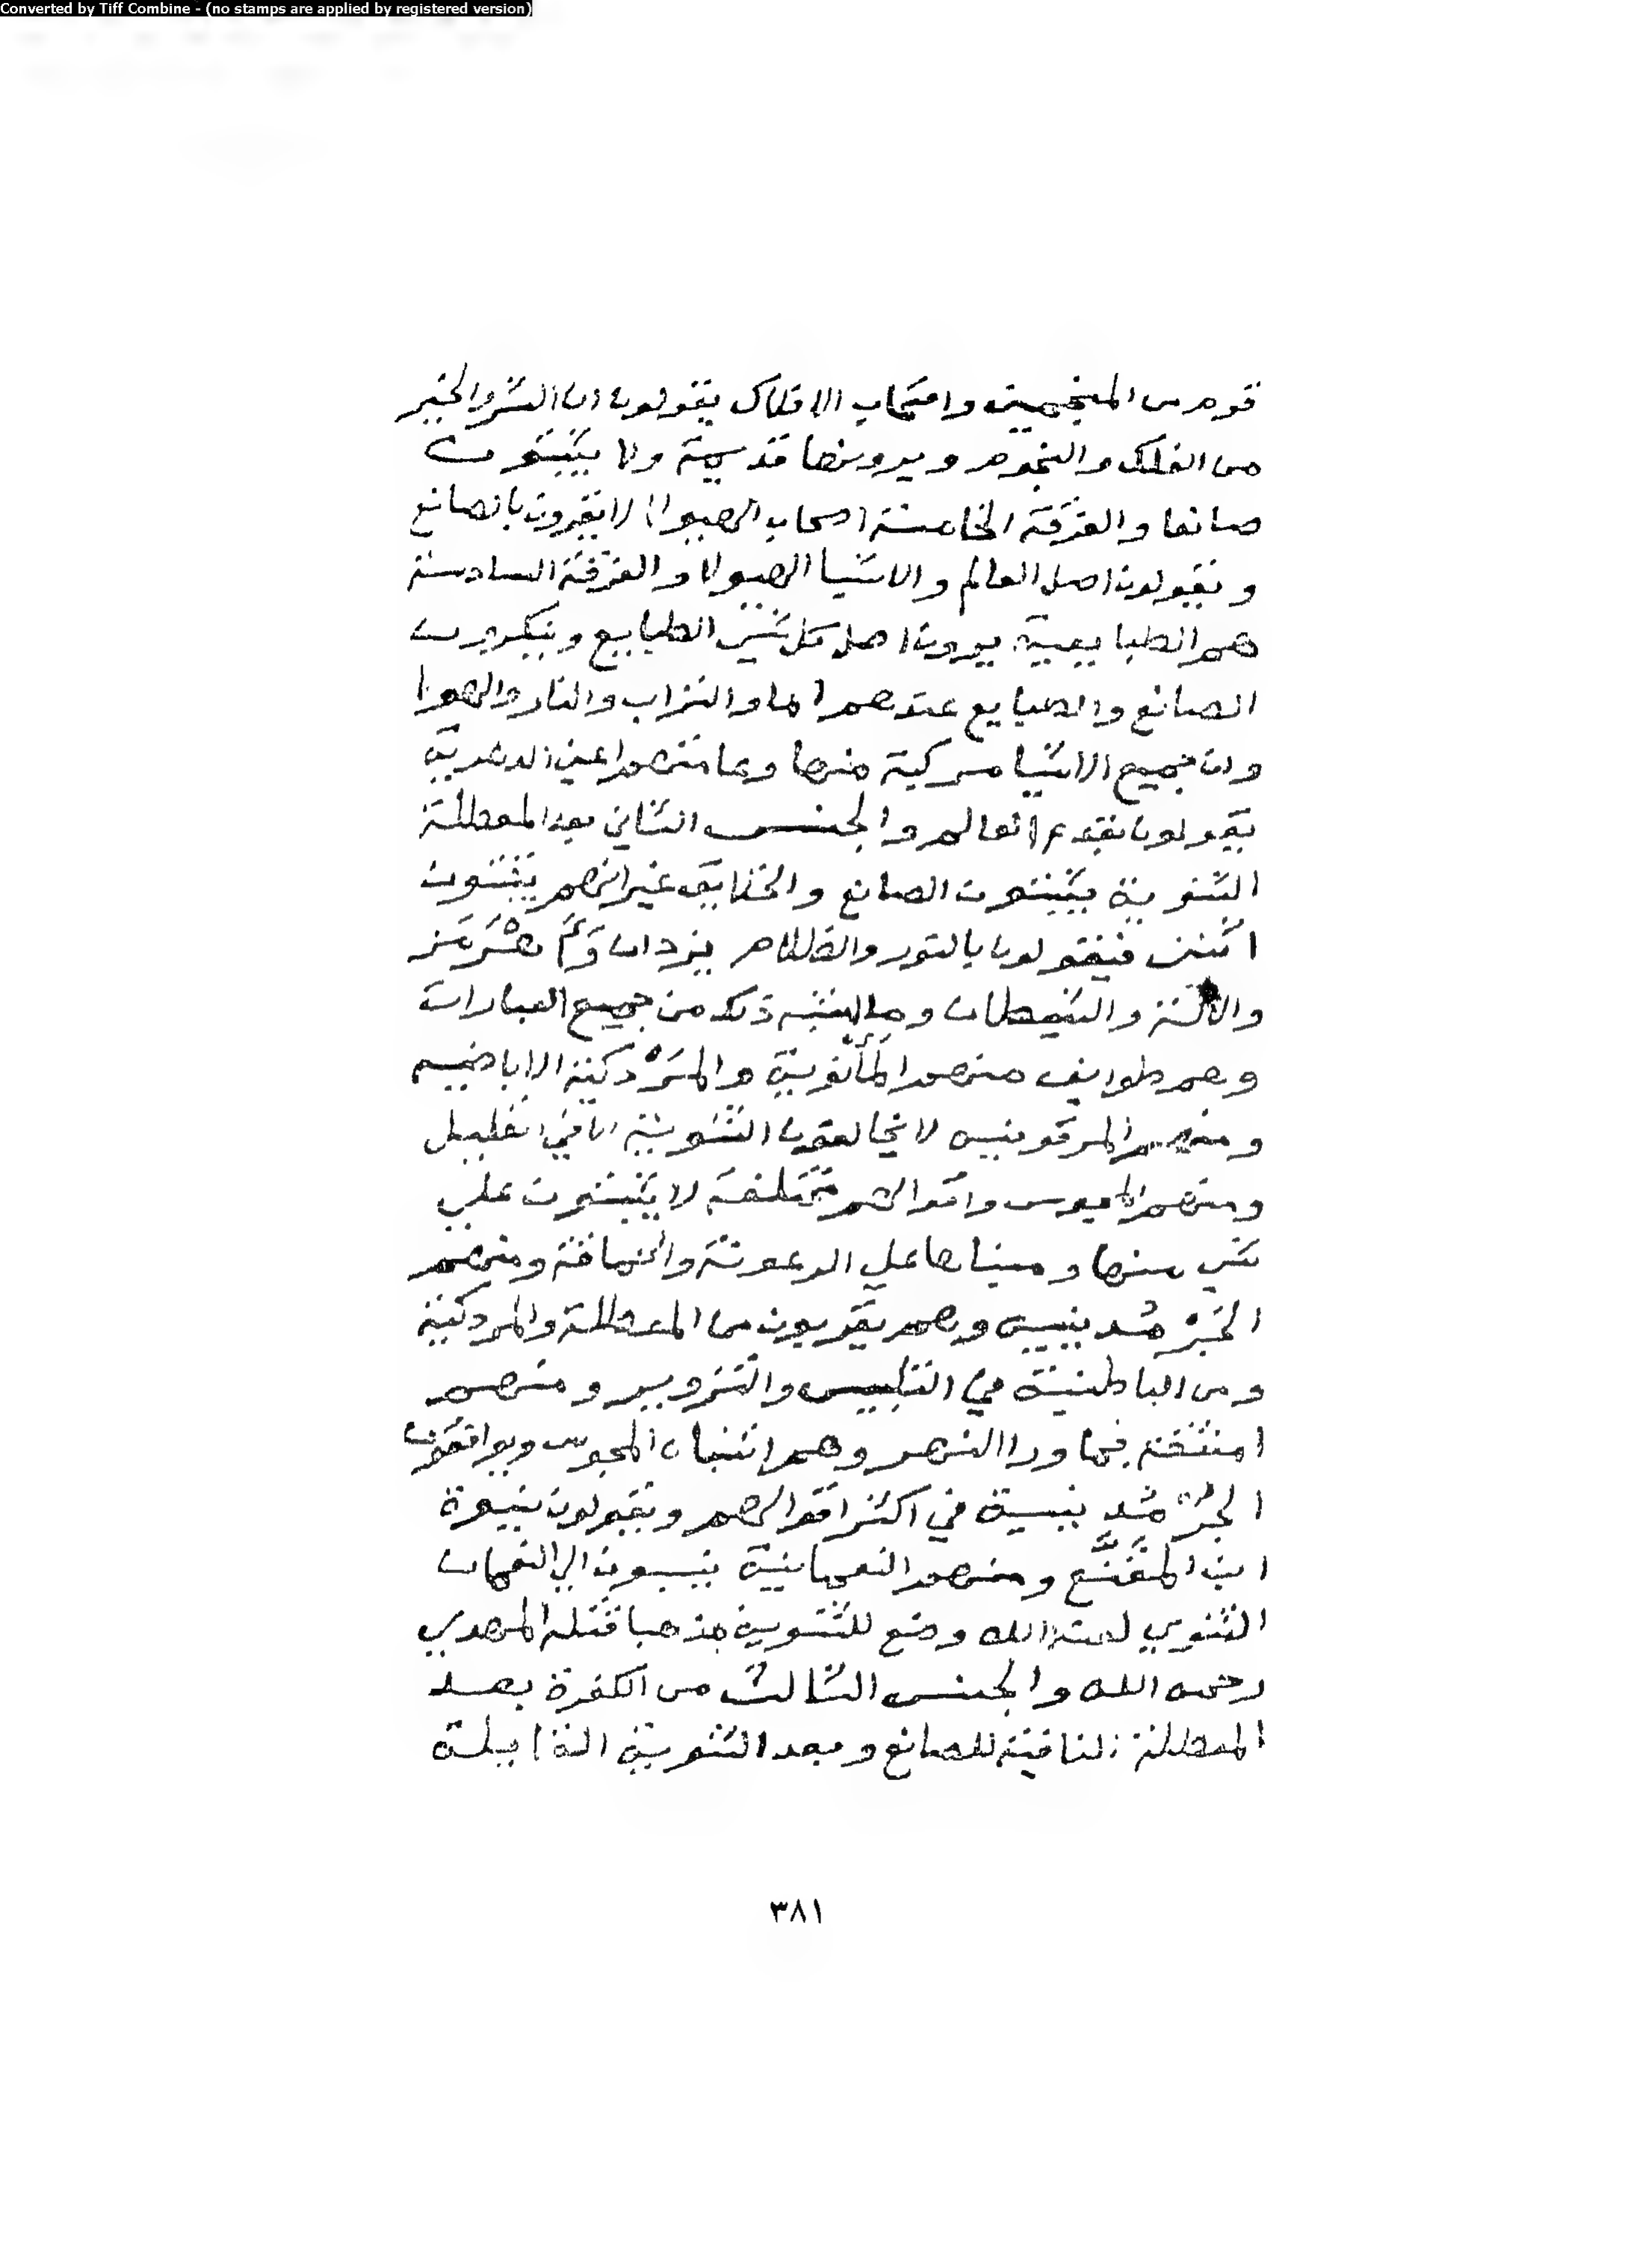 Converted by Tiff Combine - (no stamps are applied by registered version)
قوم من المنجمين واصحاب الافلاك يقولون ان الشر والخير
من الفلك والنجوم ويرونها قديمة ولا يثبتون
صانعا والفرقة الخامسة اصحاب الهيولا لا يقرون بالصانع
ويقولون اصل العالم والاشيا الهيولا والفرقة السادسة
هم الطبايعية يرون اصل كل شي الطبايع وينكرون
الصانع والطبايع عندهم الما والتراب والنار والهوا
وان جميع الاشيا مركبة منها وعامتهم اعني الدهرية
يقولون بقدم العالم والجنس الثاني بعد المعطلة
الثنوية يثبتون الصانع والخالق غير انهم يثبتون
اثنين فيقولون بالنور والظلام يزدان وَ هُرمُز
والشيطان وما يشبه ذلك من جميع العبارات
وهم طوايف منهم المانوية والمَزْدكية الاباضيم
ومنهم المرقونيه لا يخالفون الثنوية الا في القليل
ومنهم المجوس واقوالهم مختلفة لا يثبتون علي
شي منها ومبناها علي الرعونة والحماقة ومنهم
الخُرْمُدينيه وهم يقربون من المعطلة والمزدكية
ومن الباطنية في التلبيس والتزوير ومنهم
امتقنة فيما ورا النهر وهم اشباه المجوس ويوافقون
الخُرْمُدِينية في اكثر اقوالهم ويقولون بنبوة
ابن المُقَنَّع ومنهم النعمانية ينسبون الي النعمان
الثنوي لعنه الله وضع للثنوية مذهبا قتله المهدي
رحمه الله والجنس الثالث من الكفرة بعد
المعطلة النافية للصانع وبعد الثنوية القايلة
٣٨١